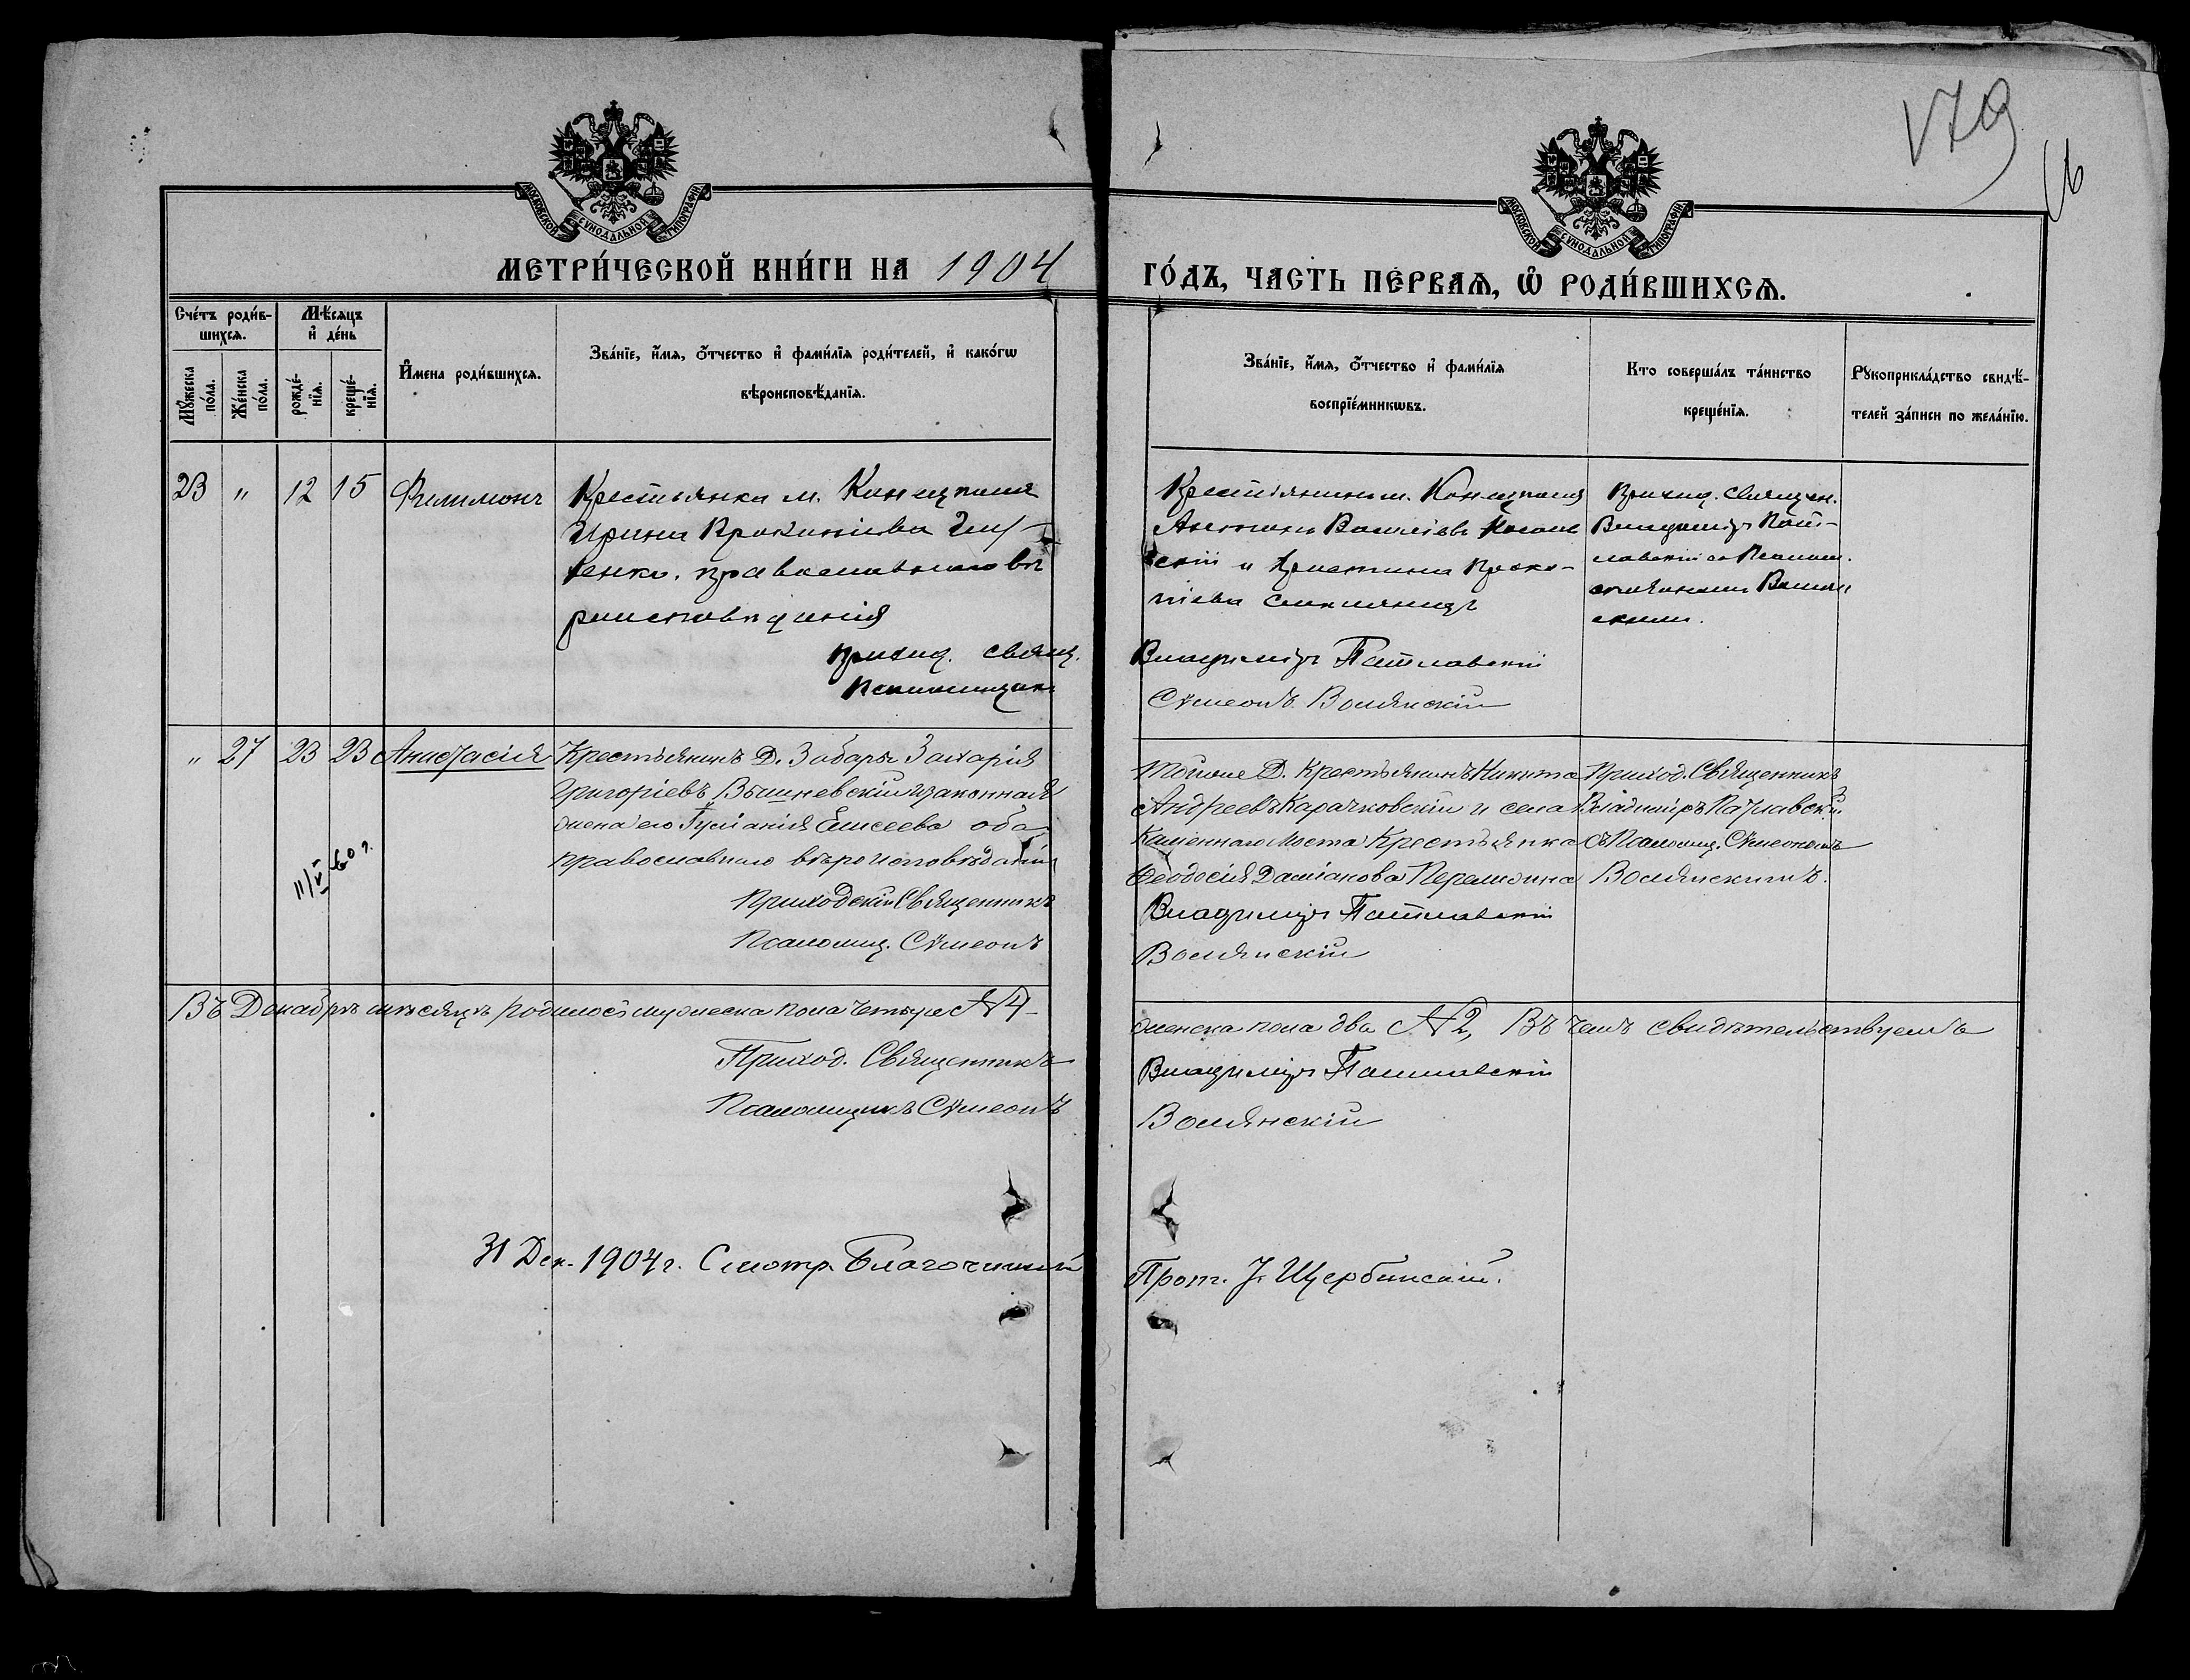 179
16
МОСКОВСКОЙ СѴНОДАЛЬНОЙ ТИПОГРАФІИ
МОСКОВСКОЙ СѴНОДАЛЬНОЙ ТИПОГРАФІИ
МЕТРИ́ЧЕСКОЙ КНИ́ГИ НА 1904
ГО́ДЪ, ЧАСТЬ ПЕ́РВАѦ, Ѡ҆ РОДИ́ВШИХСѦ.
Сче́тъ роди́в-
шихсѧ.
Мѣ́сѧцъ
и҆ де́нь
Мꙋ́жеска
по́ла.
Же́нска
по́ла.
рожде́-
нїѧ.
креще́-
нїѧ.
И҆мена роди́вшихсѧ.
Зва́нїе, и҆́мѧ, ѻ҆́тчество и҆ фами́лїѧ роди́телей, и҆ како́гѡ
вѣроисповѣ́данїѧ.
Зва́нїе, и҆́мѧ, ѻ҆́тчество и҆ фами́лїѧ
воспрїе́мникѡвъ.
Кто соверша́лъ та́инство
креще́нїѧ.
Рꙋкоприкла́дство свидѣ́-
телей за́писи по жела́нїю.
23 " 12 15 Филимонъ
Крестьянка м. Конецполя
Ирина Прокопіева
енко, православнаго вѣ
роисповѣданія
приход. Свящ.
Псаломщик
Крестьянин м. Конецполя
Василіевъ
скій и Христина Проко-
піева
Владиміръ Патлавскій
Сѵмеонъ Волянскій
Приход. Священ.
Владиміръ Пат-
лавскій съ Псалом.
Волян
скимъ.
" 27 23 23 Анастасія
Крестьянинъ Д. Забары Захарія
Григоріевъ Вышневскій и законная
жена его Гуліанія Елисеева оба
православнаго вѣроисповѣданія
Приходскій Священникъ
Псаломщ. Сѵмеонъ
11/V 60 г.
Тойже Д. Крестьянинъ Никита
Андреевъ Карачковскій и села
Каменнаго Моста Крестьянка
Ѳеодосія Даміанова
Владиміръ Патлавскій
Волянскій
Приход. Священникъ
Владиміръ Патлавскій
съ Псаломщ. Сѵмеономъ
Волянскимъ.
Въ Декабрѣ мѣсяцѣ родилось мужеска пола четыре № 4
женска пола два № 2, Въ чемъ свидѣтельствуемъ
Приход. Священникъ Владиміръ Патлавскій
Псаломщикъ Сѵмеонъ Волянскій
31 Дек. 1904 г. Смотр. Благочинный Прот. І. Щербинскій.